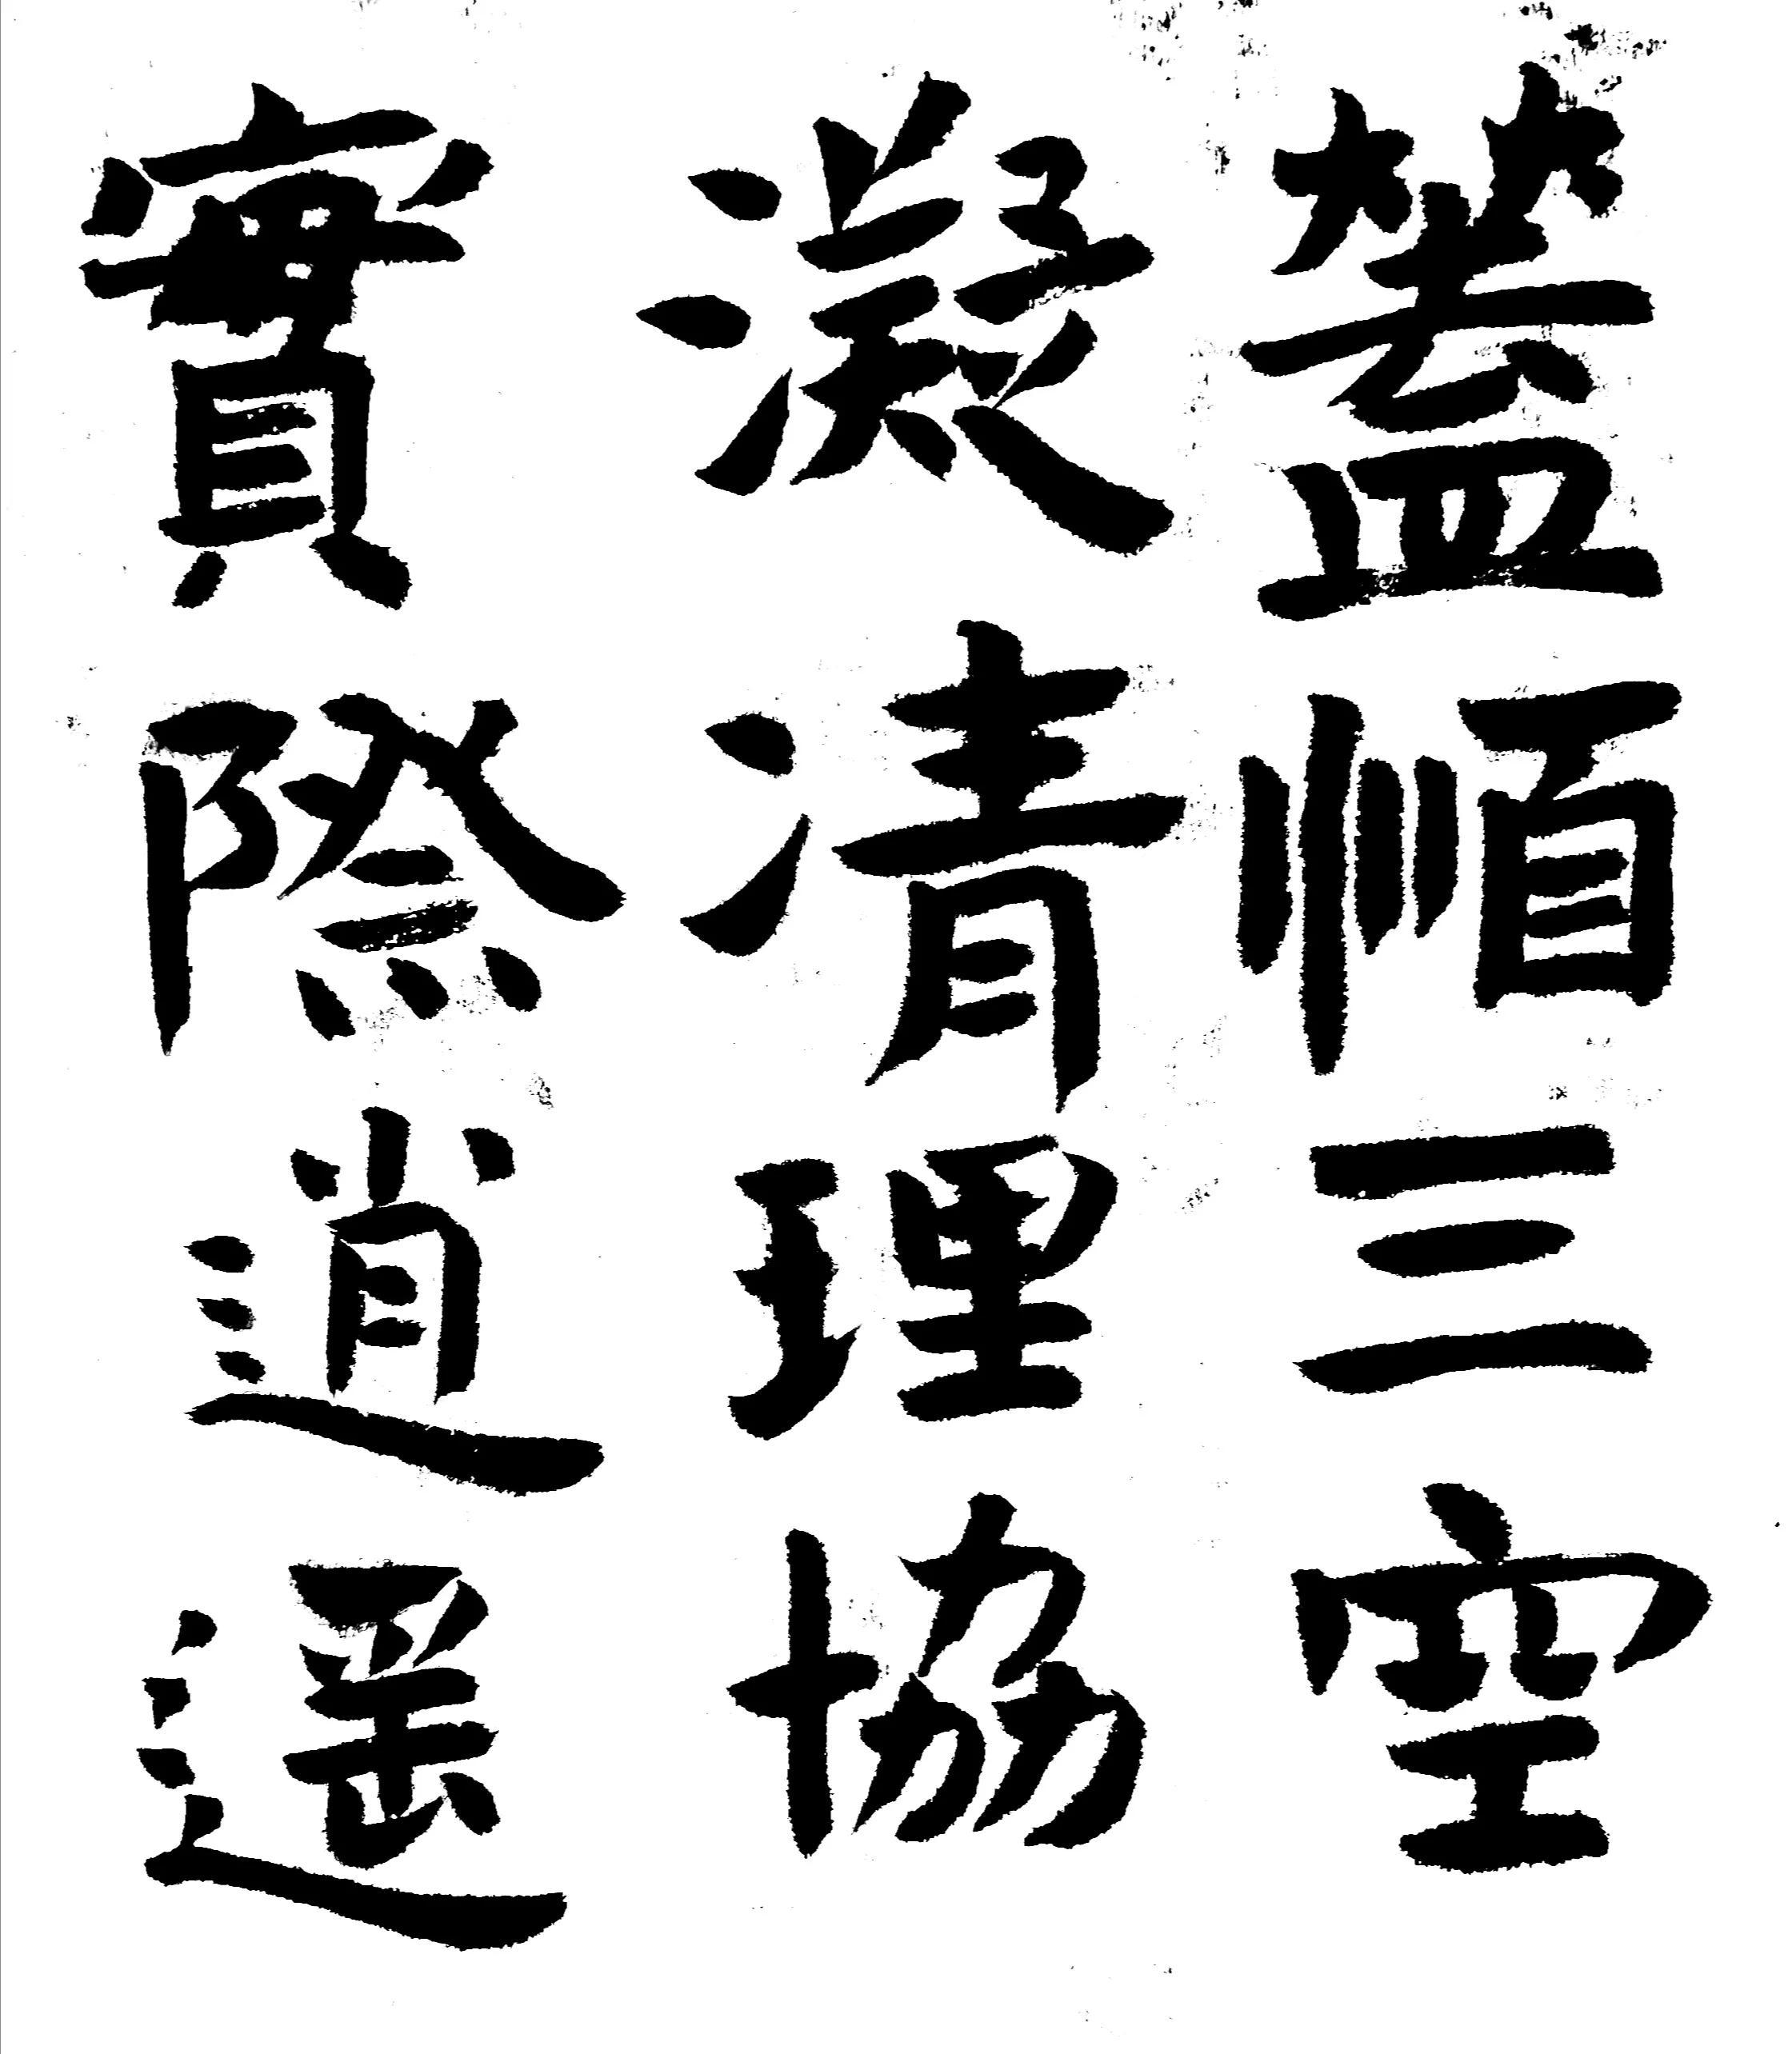 蓋三空
凝清理協
實際逍遥